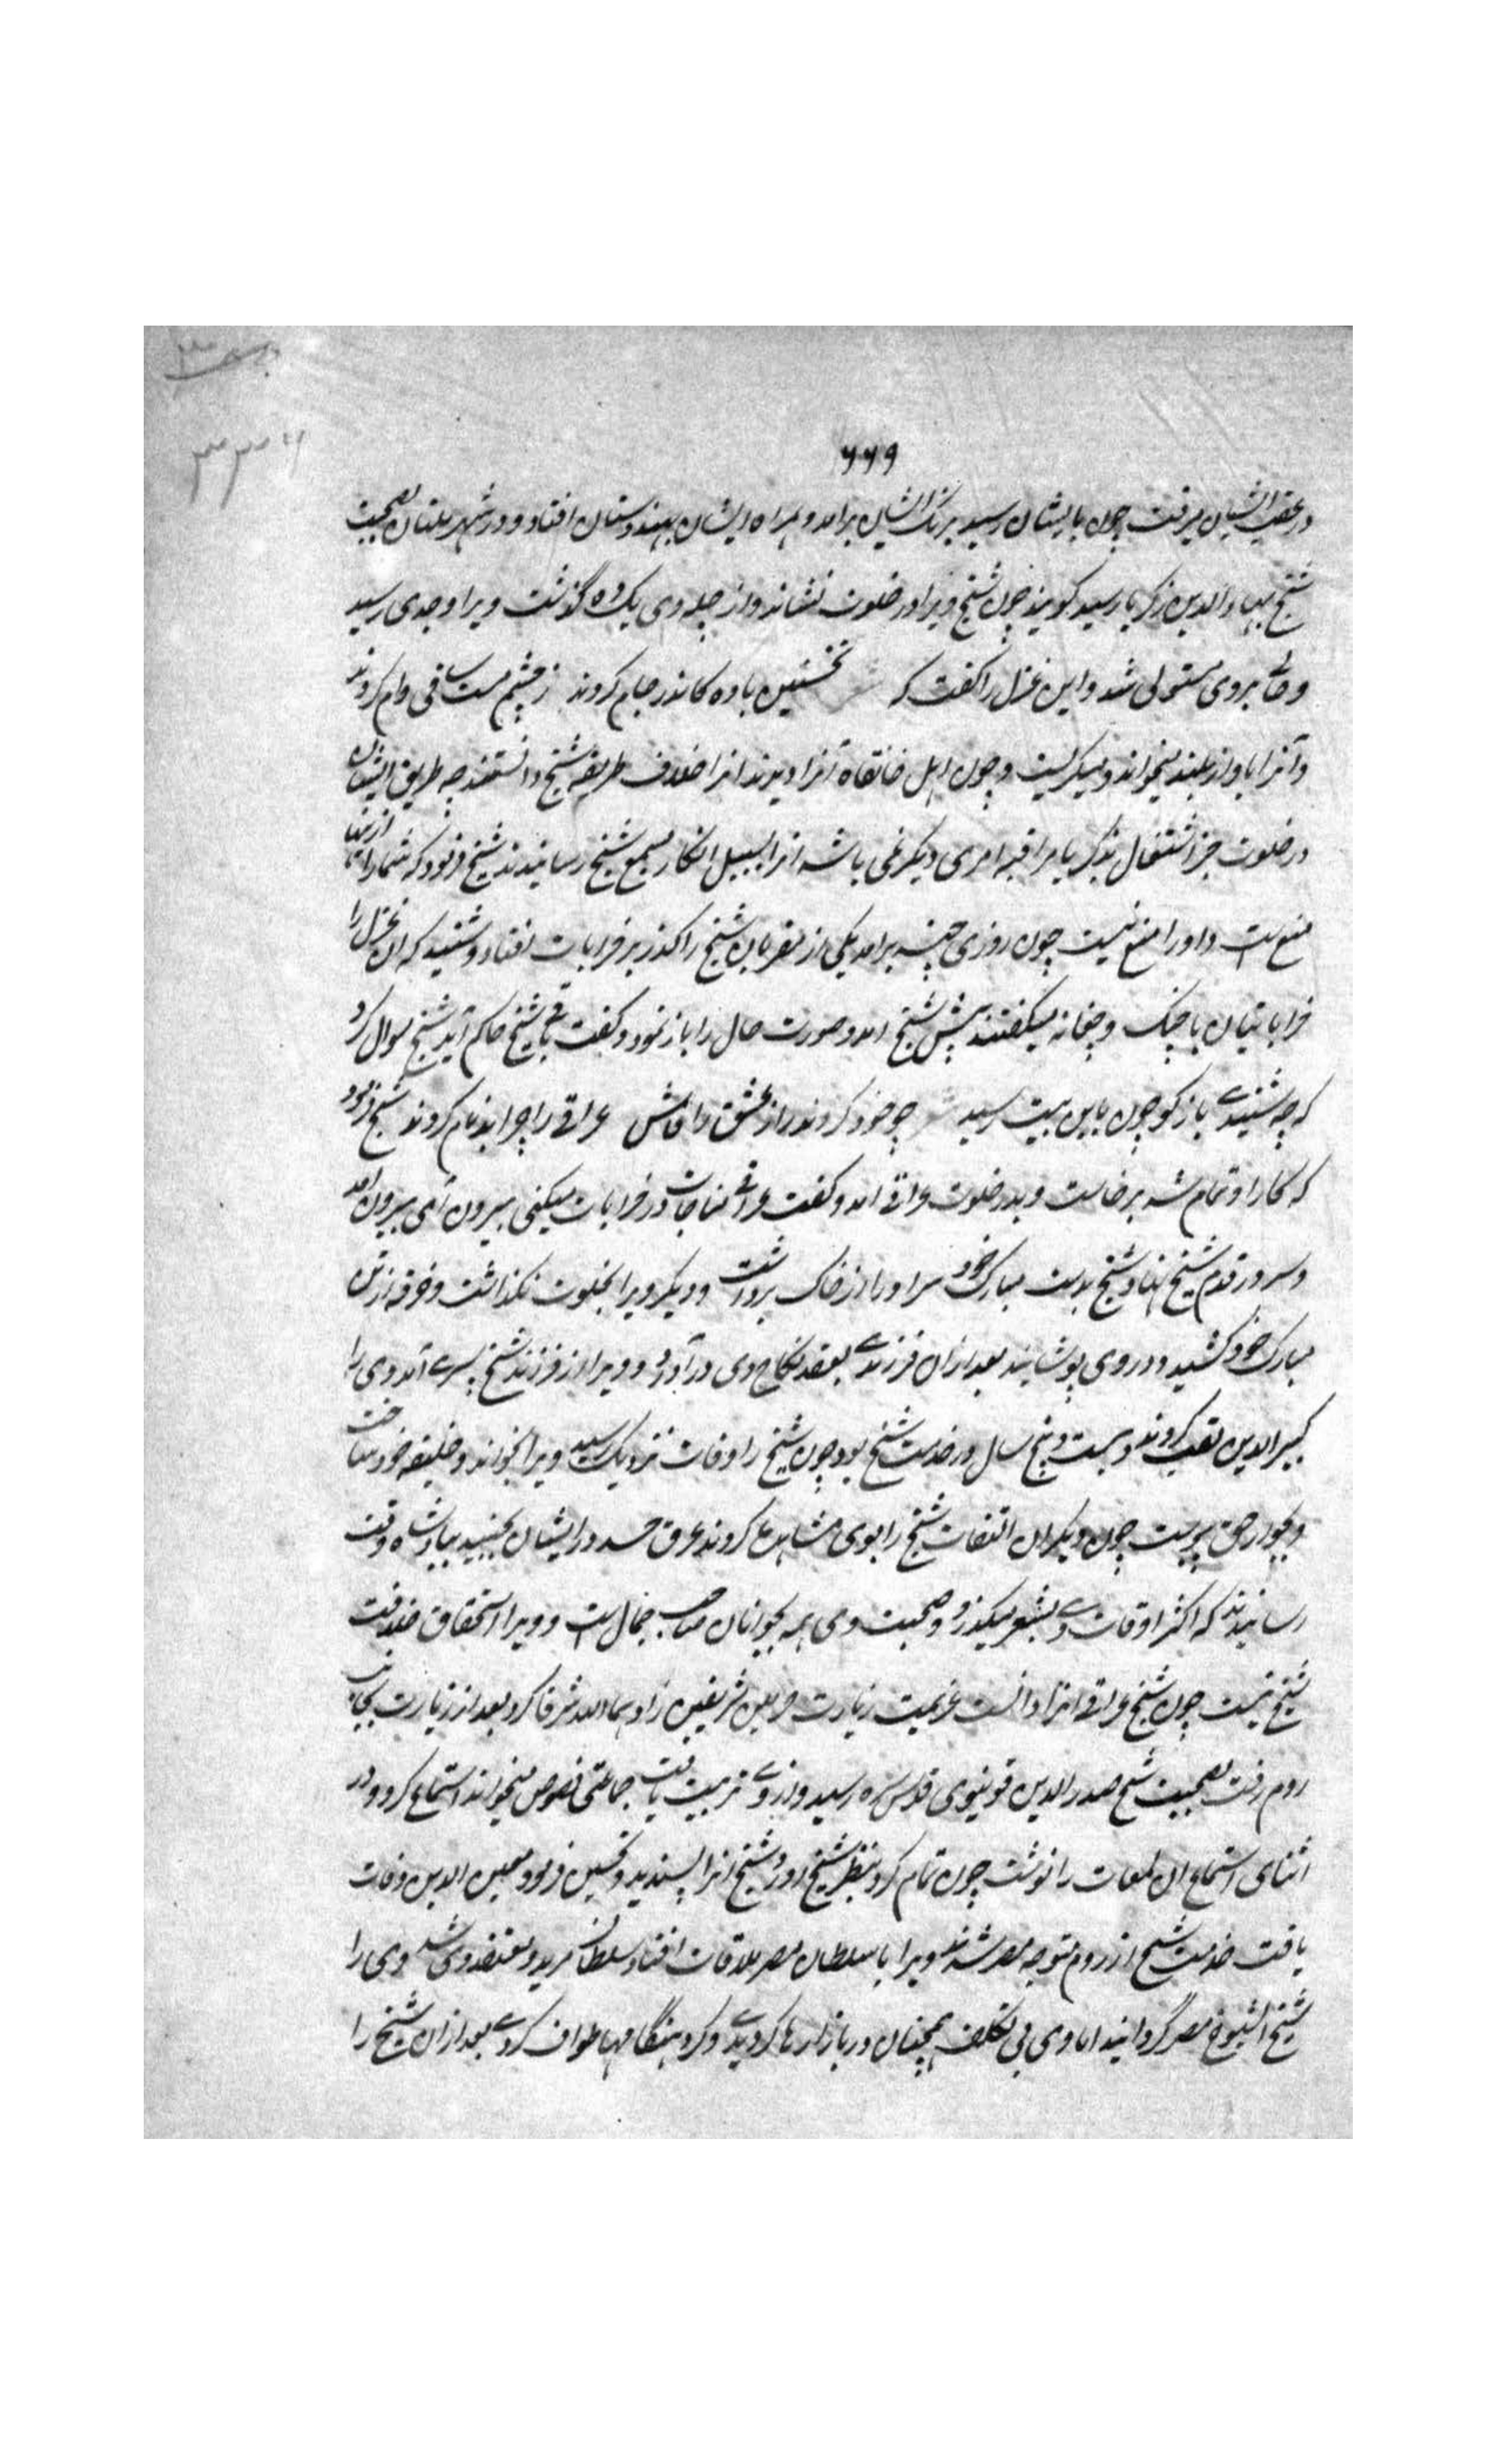 ۶۶۹
در عقب ایشان برفت چون بایشان رسید برنک ایشان برامد و همراه ایشان بهندوستان افتاد و در شهر ملتان بصحبت
شیخ بهاء الدین زکریا رسید کویند چون شیخ ویرا در خلوت نشاند و از چله وی یک دهه گذشت ویرا وجدی رسید
و حالی بروی مستولی شد و این غزل را کفت که نخستین باده کاندر جام کردند ز چشم مست ساقی وام کردند
و آنرا باواز بلند میخواند و میکریست و چون اهل خانقاه آنرا دیدند انرا خلاف طریقه شیخ دانستند چه طریق ایشان
در خلوت جز اشتغال بذکر یا مراقبه امری دیکر نمی باشد انرا بسبیل انکار بسمع شیخ رسانیدند شیخ فرمود که شما را ازینها
منع است و او را منع نیست چون روزی چند برامد یکی از مقربان شیخ را کذر بر خرابات افتاد و شنید که ان غزل را
خراباتیان با چنک و چغانه میکفتند پیش شیخ امد و صورت حال را باز نمود و کفت باقی شیخ حاکم اند شیخ سوال کرد
که چه شنیدے باز کو چون باین بیت رسید چو خود کردند راز عشق را فاش عراقی را چرا بدنام کردند شیخ فرمود
که کار او تمام شد برخاست و بدر خلوت عراقی امد و کفت عراقی مناجات در خرابات میکنی بیرون آی بیرون امد
و سر در قدم شیخ نهاد و شیخ بدست مبارک خود سر او را از خاک برداشت و دیکر ویرا بخلوت نکذاشت و خرقه از تن
مبارک خود کشید و در وی پوشانید بعد ازان فرزندے بعقد نکاح وی در آورد و ویرا از فرزند شیخ پسرے آمد وی را
کبیر الدین لقب کردند و بیست و پنج سال در خدمت شیخ بود چون شیخ را وفات نزدیک رسید ویرا بخواند و خلیفه خود ساخت
و بجوار حق پیوست چون دیکران التفات شیخ را بوی مشاهده کردند عرق حسد در ایشان بجنبید بپادشاه وقت
رسانیدند که اکثر اوقات وے بشعر میکذرد و صحبت وی همه بجوانان صاحب جمال است و ویرا استحقاق خلافت
شیخ نیست چون شیخ عراقی انرا دانست عزیمت زیارت حرمین شریفین زادهما الله شرفا کرد بعد از زیارت بجانب
روم رفت بصحبت شیخ صدر الدین قونیوی قدس سره رسید و از وے تربیت یافت جماعتی فصوص میخواندند استماع کرد و در
اثنای استماع ان لمعات را نوشت چون تمام کرد بنظر شیخ اورد شیخ انرا پسندید و تحسین فرمود معین الدین وفات
یافت خدمت شیخ از روم متوجه مصر شدند ویرا با سلطان مصر ملاقات افتاد سلطان مرید و معتقد وی شد وی را
شیخ الشیوخ مصر گردانید اما وی بی تکلف همچنان در بازارها کردیدے و کرد هنگامها طواف کردے بعد ازان شیخ را